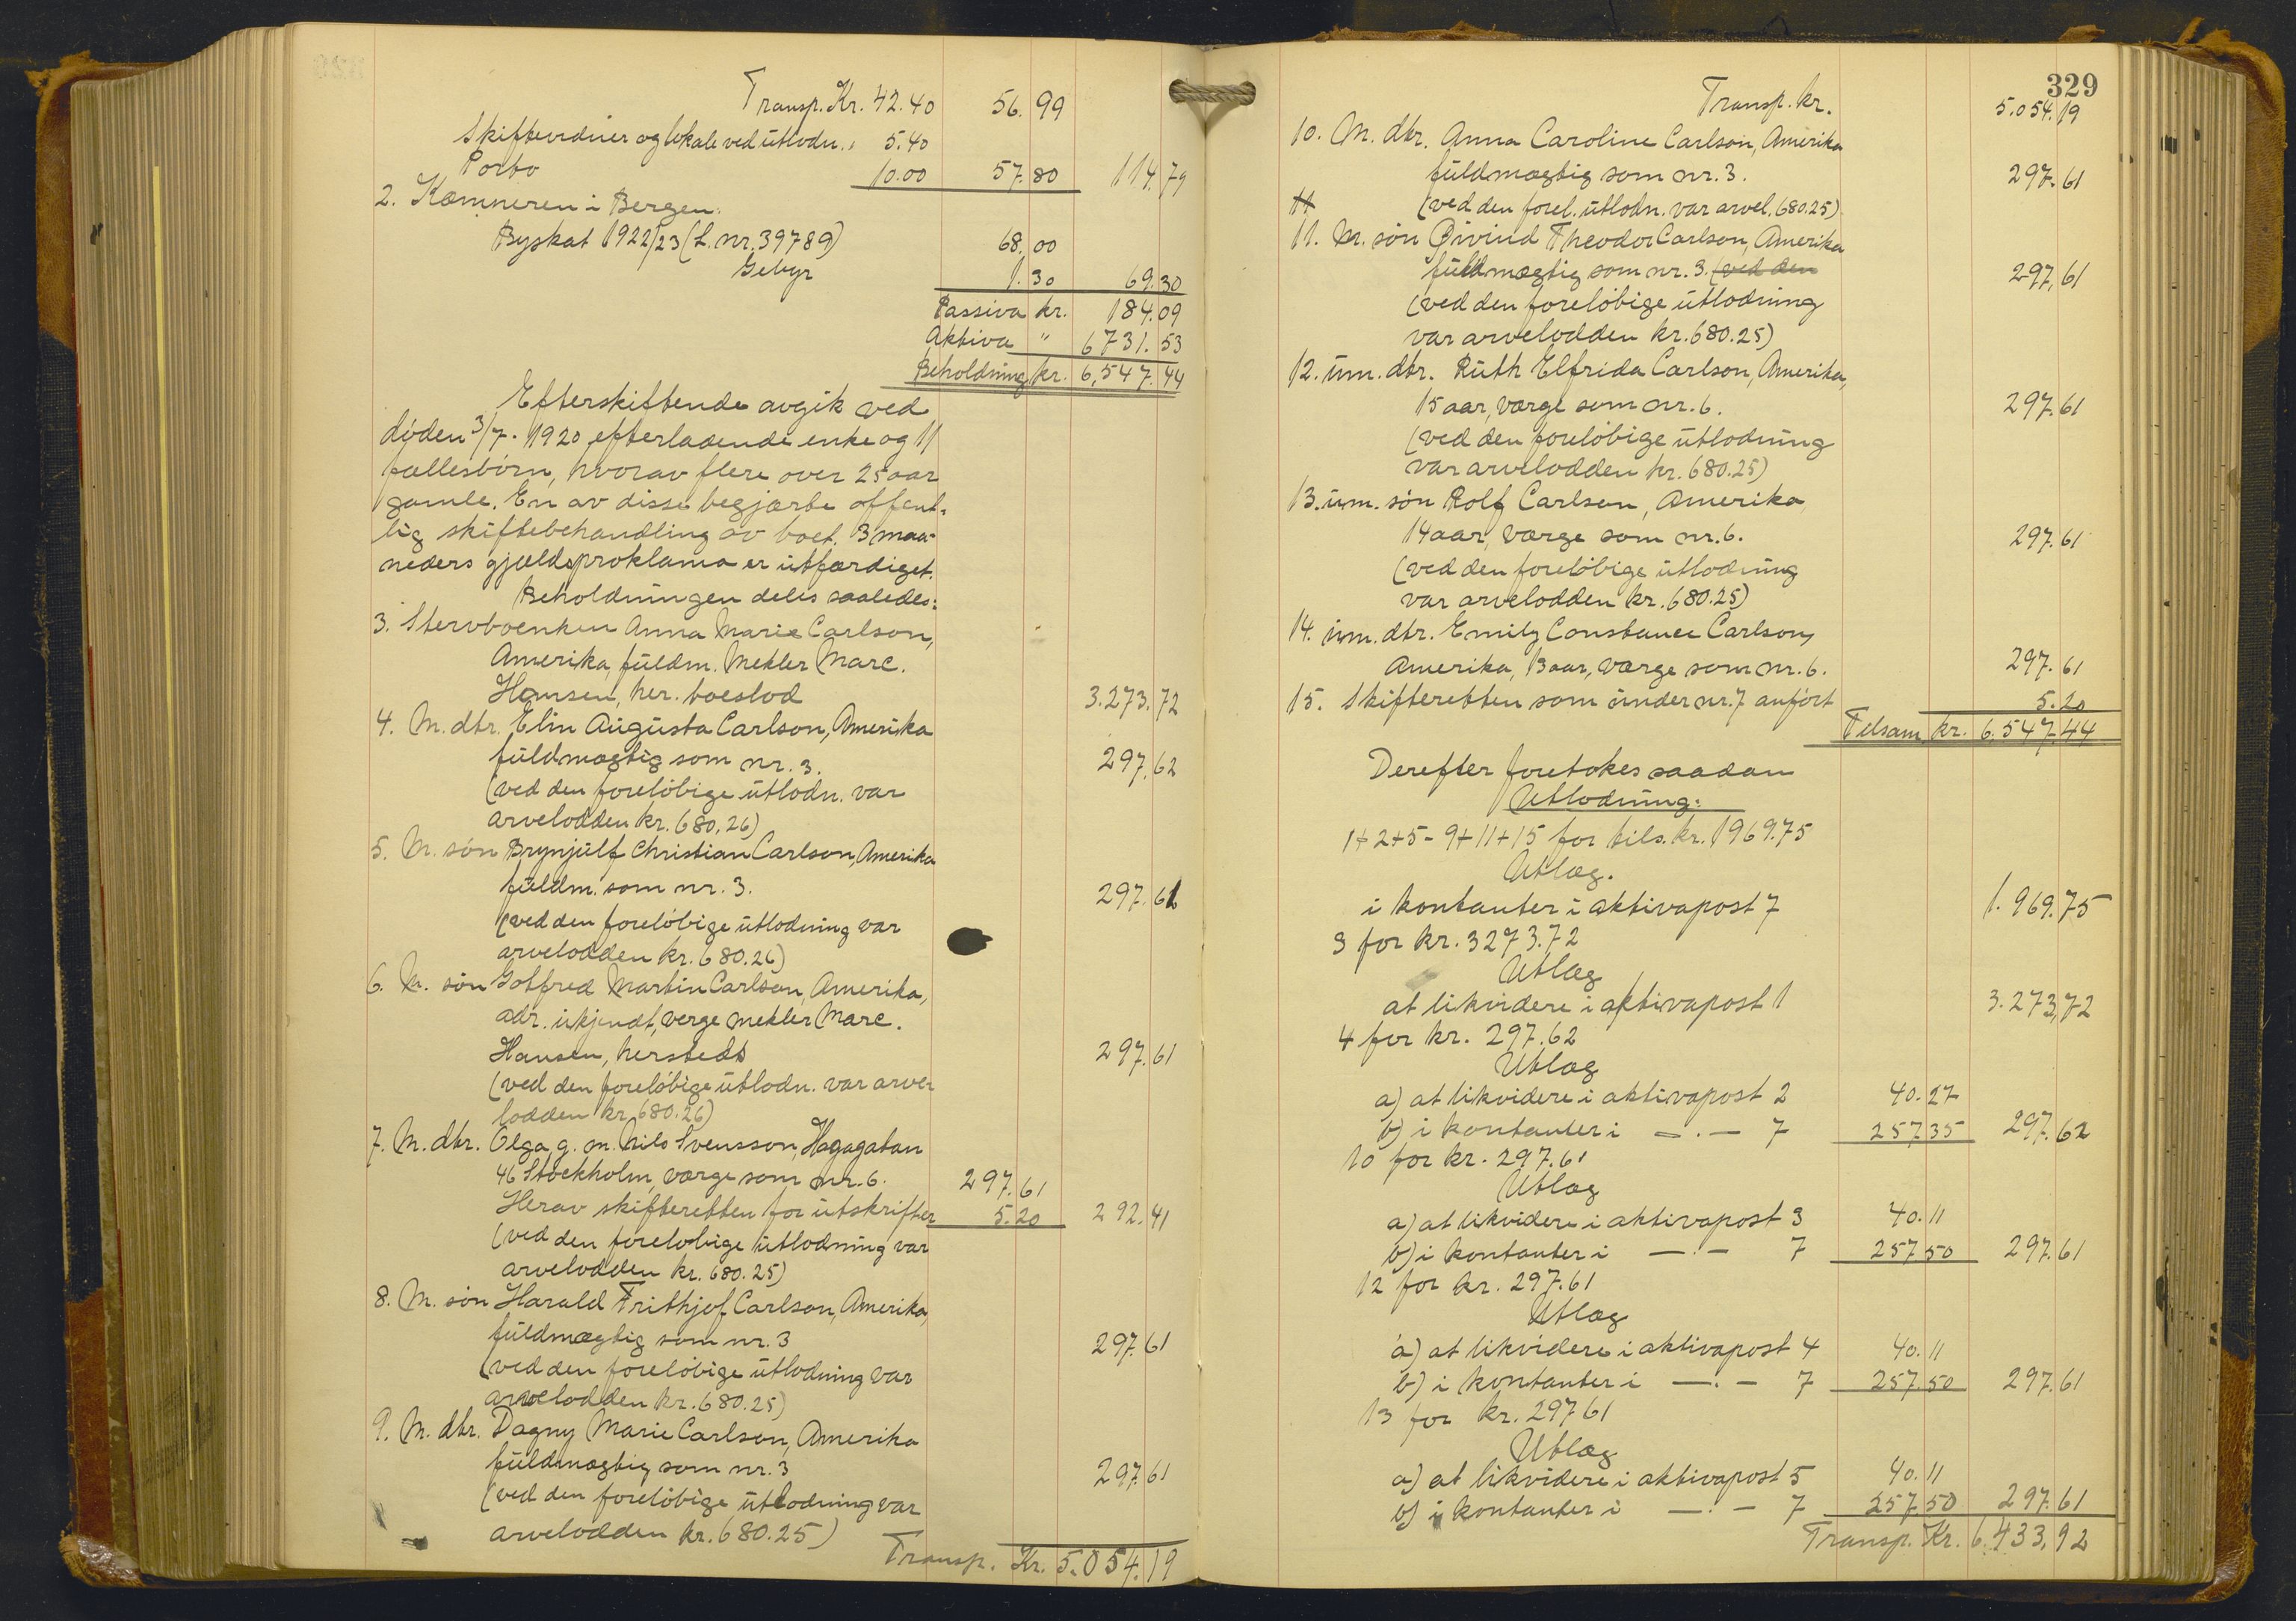 Transp. Kr. 42.40 56.99
Skiftevidner og lokale ved utlodn. " 5.40
Porto 10.00 57.80 114.79
2. Kæmneren i Bergen:
Byskat 1922/23 (L. nr. 39789) 68.00
Gebyr 1.30 69.30
Passiva kr. 184.09
Aktiva " 6731.53
Beholdning kr. 6,547.44
Efterskiftende avgik ved
døden 3/7. 1920 efterladende enke og 11
fællesbörn, hvorav flere over 25 aar
gamle. En av disse begjærte offent-
lig skiftebehandling av boet. 3 maa-
neders gjældsproklama er utfærdiget.
Beholdningen deles saaledes:
3. Stervboenken Anna Marie Carlson,
Amerika, fuldm. Mekler Marc.
Hansen, her. boeslod 3.273.72
4. M. dtr. Elin Augusta Carlson, Amerika
fuldmægtig som nr. 3. 297.62
(ved den forelöbige utlodn. var
arvelodden kr. 680,26)
5. M. sön Brynjulf Christian Carlson, Amerika
fuldm. som nr. 3. 297.61
(ved den forelöbige utlodning var
arvelodden kr. 680.26)
6. M. sön Gotfred Martin Carlson, Amerika,
adr. ukjendt, verge mekler Marc.
Hansen, hersteds 297.61
(ved den forelöbige utlodn. var arve-
lodden kr. 680.26)
7. M. dtr. Olga g. m. Nils Svensson, Hagagatan
46 Stockholm, værge som nr. 6. 297.61
Herav skifteretten for utskrifter 5.20 292.41
(ved den forelobige utlodning var
arvelodden kr. 680.25)
8. M. sön Harald Frithjof Carlson, Amerika,
fuldmægtig som nr. 3 297.61
(ved den forelöbige utlodning var
arvelodden kr. 680.25)
9. M. dtr. Dagny Marie Carlson, Amerika
fuldmægtig som nr. 3 297.61
(ved den forelöbige utlodning var
arvelodden kr. 680.25)
Transp. Kr. 5.054.19
329
Transp. kr. 5.054.19
10. M. dtr. Anna Caroline Carlson, Amerika
fuldmægtig som nr. 3. 297.61
11 (ved den forel. utlodn. var arvel. 680.25)
11. M. sön Öivind Theodor Carlson, Amerika
fuldmægtig som nr. 3. (ved den 297,61
(ved den forelöbige utlodning
var arvelodden kr. 680.25)
12. um. dtr. Ruth Elfrida Carlson, Amerika,
15 aar, værge som nr. 6. 297.61
(ved den forelöbige utlodning
var arvelodden kr. 680.25)
13. um. sön Rolf Carlson, Amerika
14 aar, værge som nr. 6. 297.61
(ved den forelöbige utlodning
var arvelodden kr. 680.25)
14. um. dtr. Emily Constance Carlson,
Amerika, 13 aar, værge som nr. 6. 297.61
15. Skifteretten som under nr. 7 anfört 5.20
Tilsam. kr. 6.547.44
Derefter foretokes saadan
Utlodning:
1 + 2 + 5 - 9 + 11 + 15 for tils. kr. 1969.75
Utlæg.
i kontanter i aktivapost 7 1.969.75
3 for kr. 3273.72
Utlæg
at likvidere i aktivapost 1 3.273,72
4 for kr. 297.62
Utlæg
a) at likvidere i aktivapost 2 40.27
b) i kontanter i —.— 7 257.35 297.62
10 for kr. 297.61
Utlæg
a) at likvidere i aktivapost 3 40.11
b) i kontanter i —.— 7 257.50 297.61
12 for kr. 297.61
Utlæg
a) at likvidere i aktivapost 4 40.11
b) i kontanter i —.— 7 257.50 297.61
13 for kr. 297.61
Utlæg
a) at likvidere i aktivapost 5 40.11
b) i kontanter i —.— 7 257.50 297.61
Transp. Kr. 6.433,92